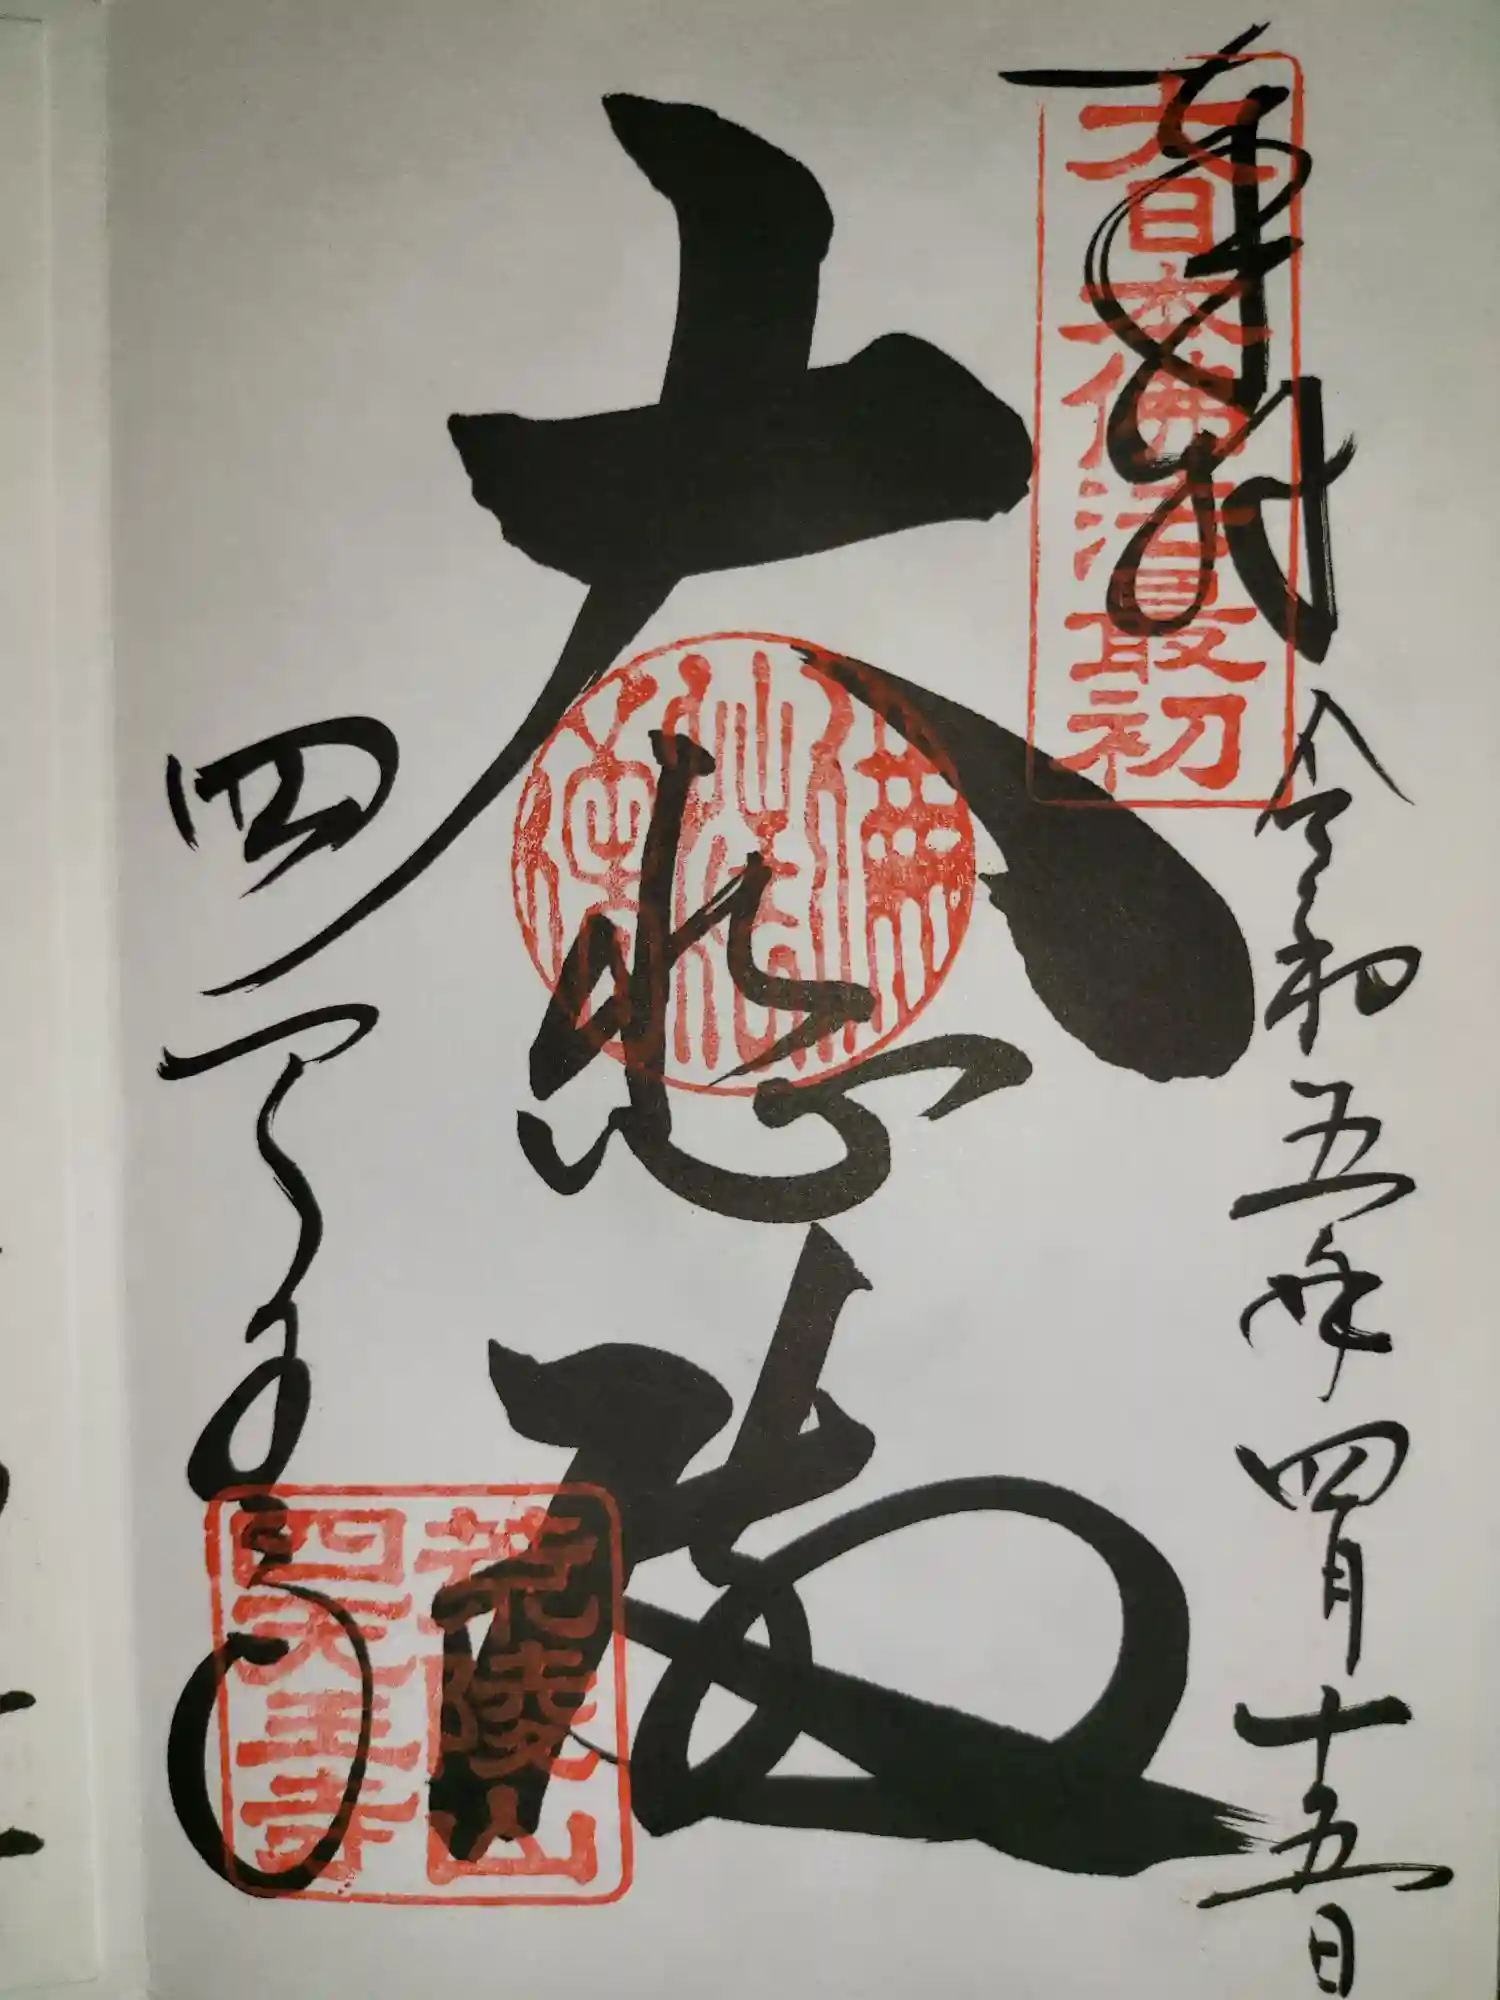 奉拝
大日本佛法最初
令和五年四月十五日
大悲殿
四天王寺
荒陵山
四天王寺